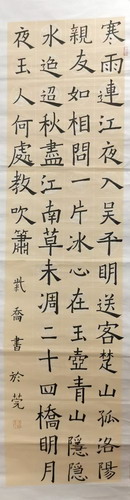 寒雨連江夜入吳平明送客楚山孤洛陽
親友如相問一片冰心在玉壺青山隱隱
水迢迢秋盡江南草未凋二十四橋明月
夜玉人何處教吹簫
紫喬書於莞